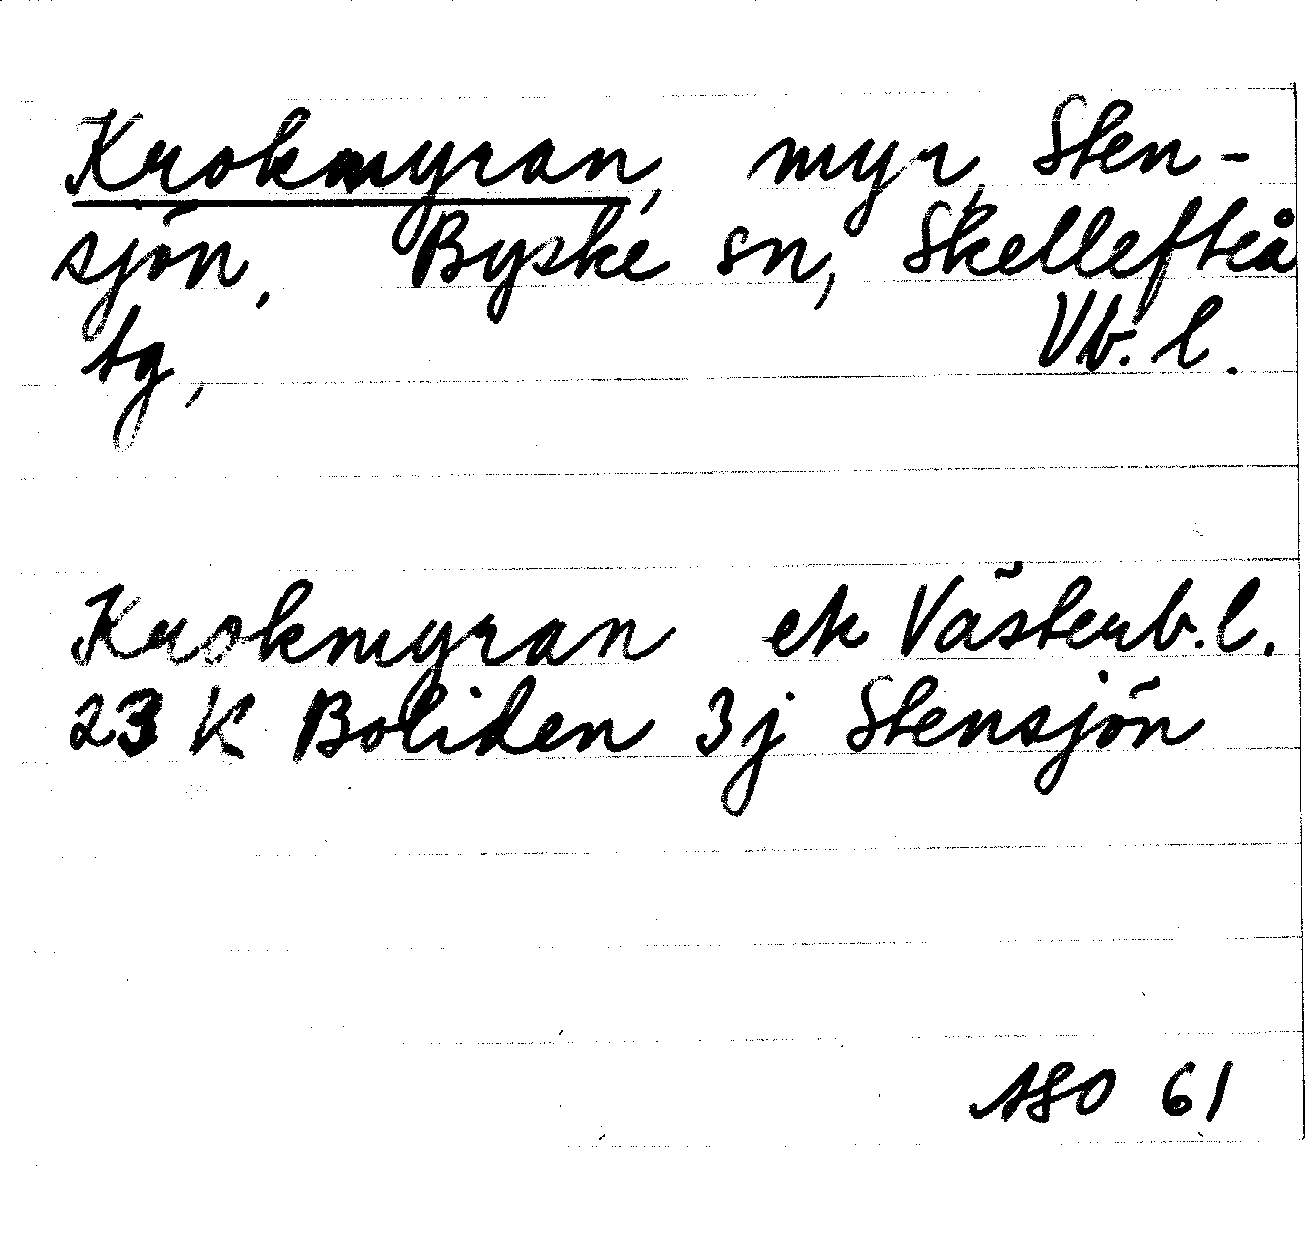 Krokmyran, myr, Sten-
sjön, Byske sn, Skellefteå
tg, Vb. l.
Krokmyran ek Västerb. l.
23 K Boliden 3j Stensjön
ASO 61